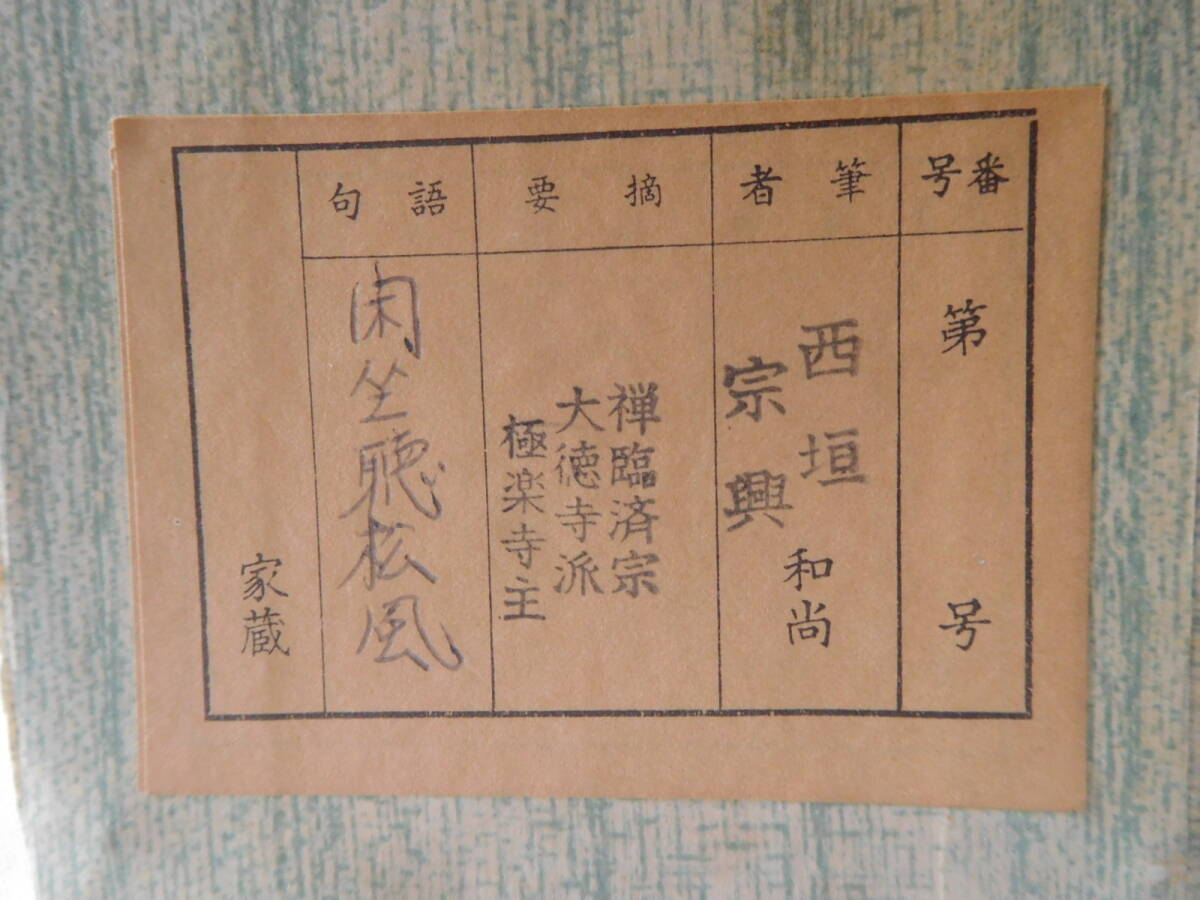 番号
第　号
筆者
西垣
宗興
和尚
摘要
禅臨済宗
大徳寺派
極楽寺主
語句
閑坐聴松風
家蔵